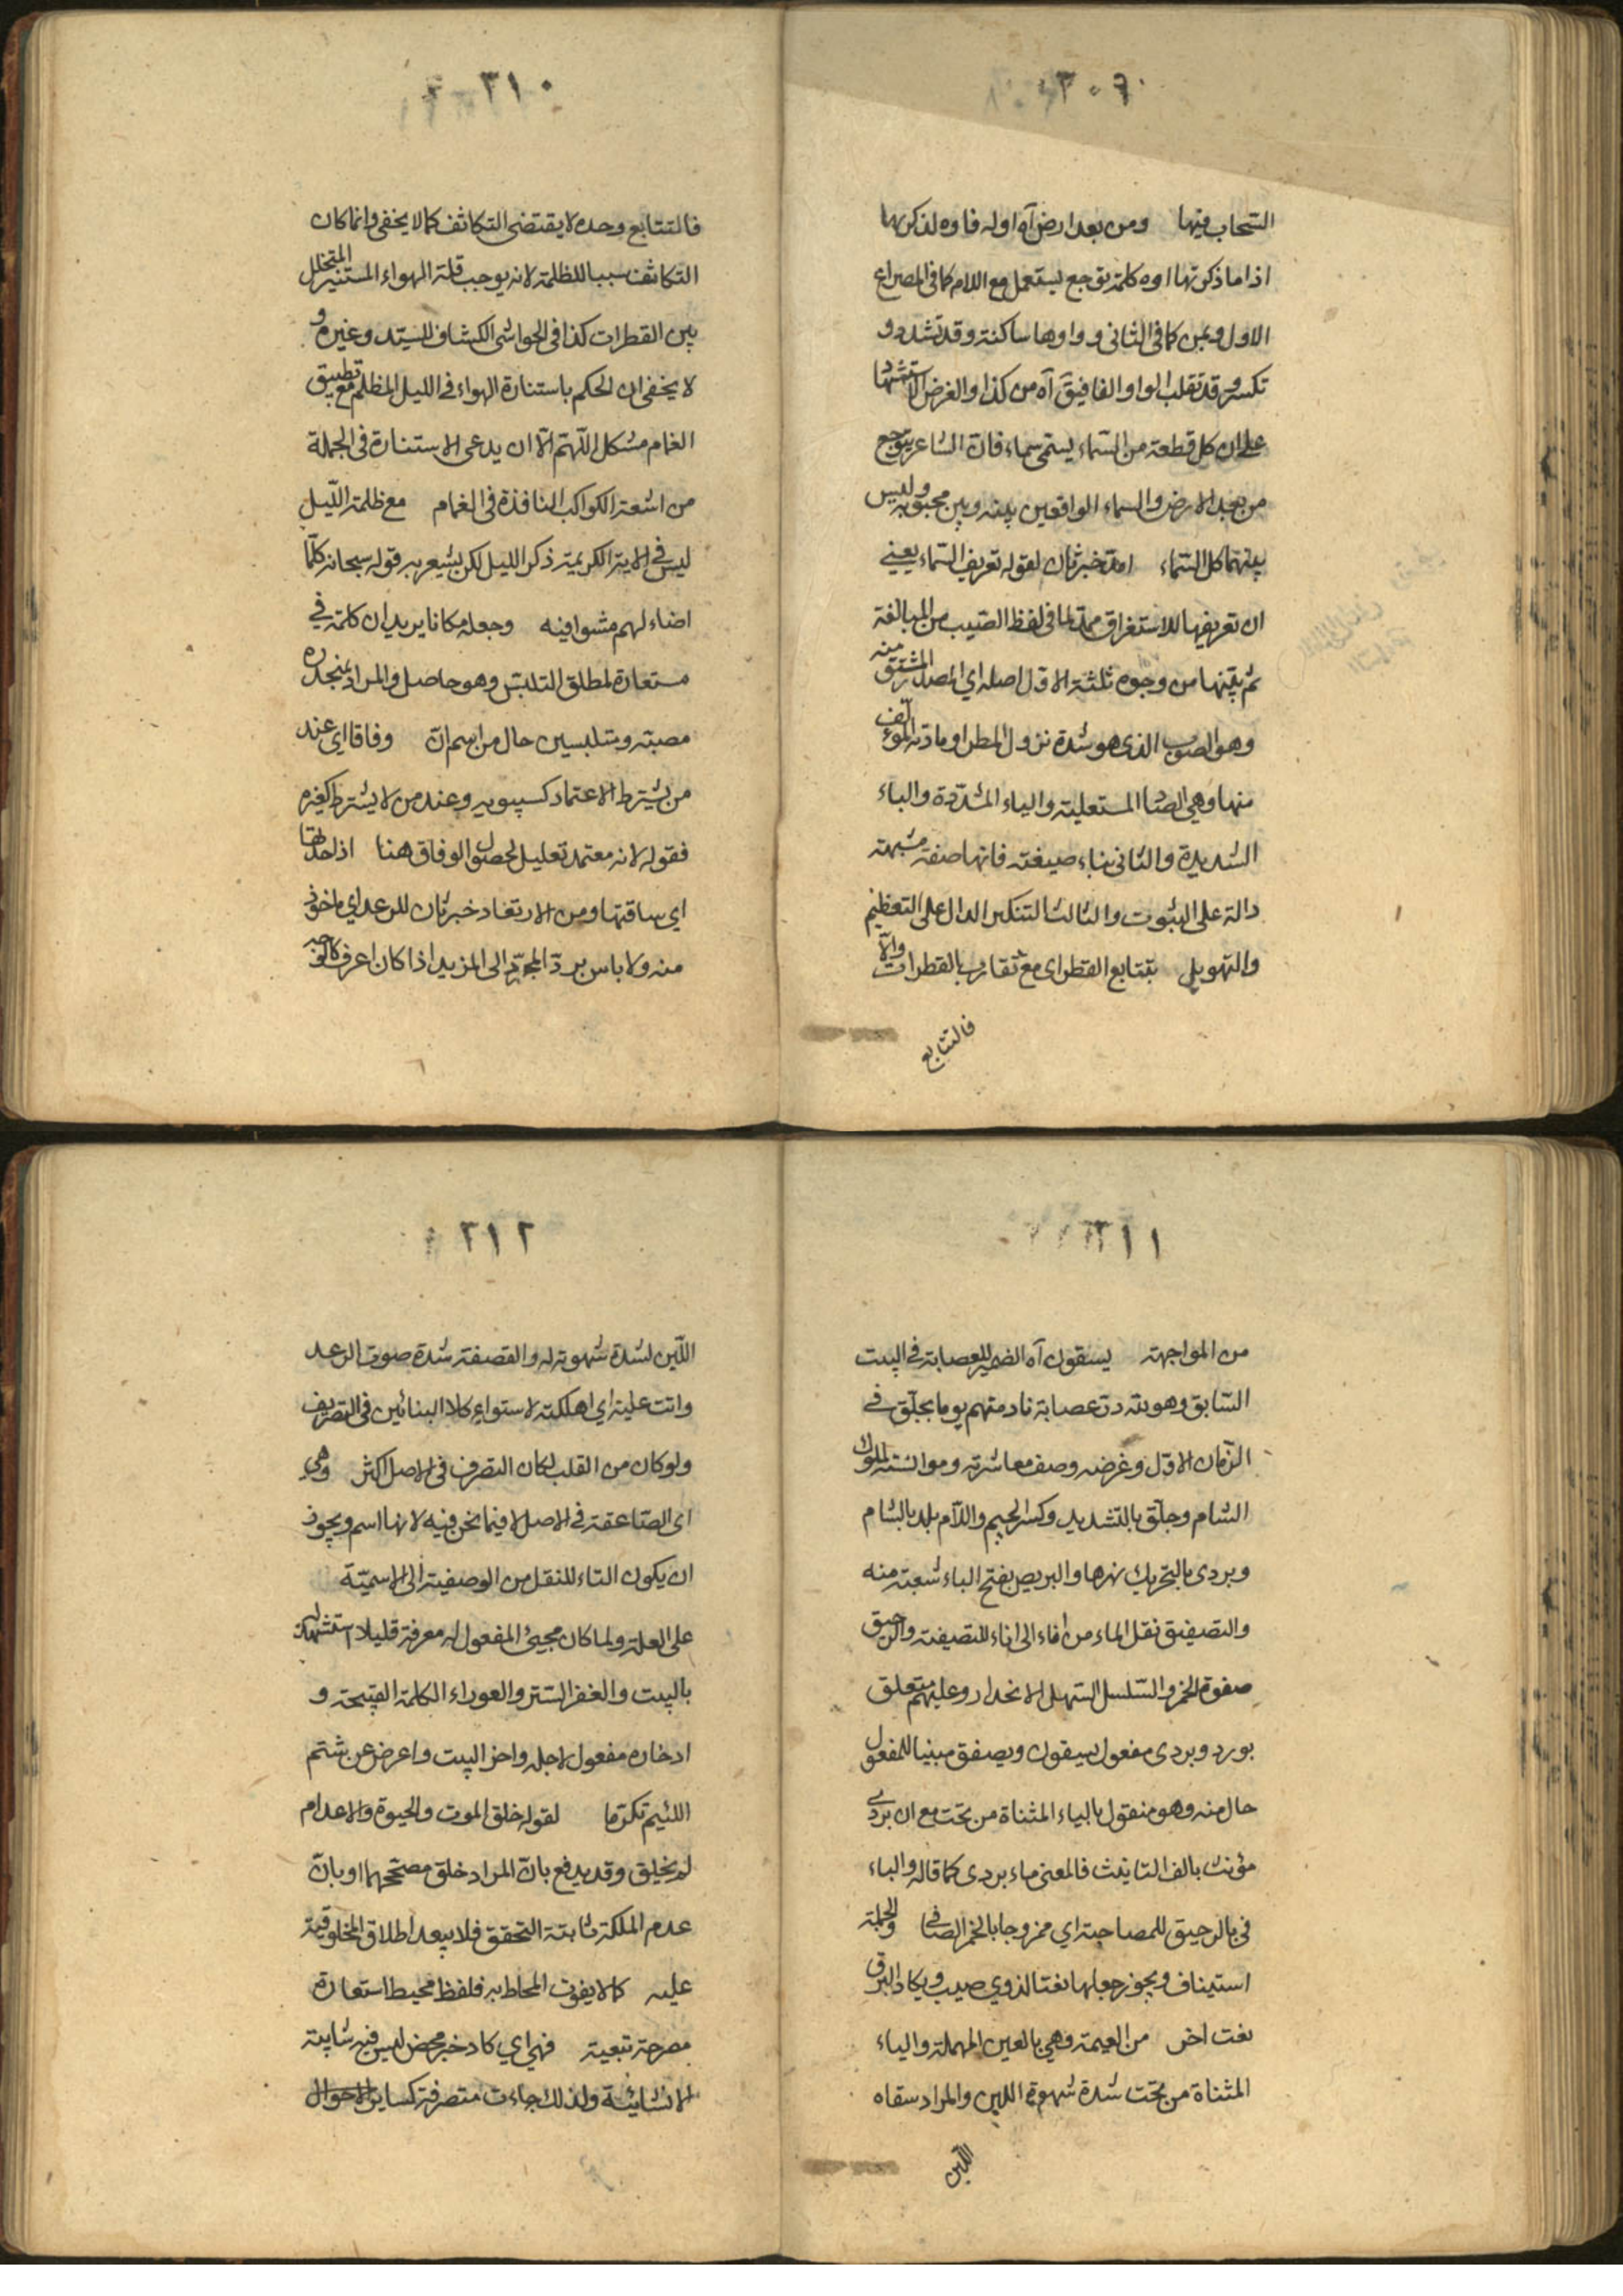 ٣٠٩
السحاب فيها ومن بعد ارض آه اوله فاوه لذكريها
اذا ما ذكرتها اوه كلمة توجع يستعمل مع اللام كما فى المصراع
الاول وبمن كما فى الثانى وواوها ساكنة وقد تشدد و
تكسر وقد تقلب الواو الفا فيق آه من كذا والغرض الاستشهاد
على ان كل قطعة من السماء يسمى سماء فان الشاعر يتوجع
من بعد الارض والسماء الواقعين بينه وبين محبوبه وليس
بينهما كل السماء امد خبر ثان لقوله تعريف السماء يعني
ان تعريفها للاستغراق ممد لما فى لفظ الصيب من المبالغة
ثم بينها من وجوه ثلثة الاول اصله اي المصدر المشتق منه
وهو الصوب الذى هو شدة نزول المطر او مادته المؤلف
منها وهي الصاد المستعلية والياء المشددة والباء
الشديدة والثانى بناء صيغته فانها صفة مشبهة
دالة على الثبوت والثالث التنكير الدال على التعظيم
والتهويل بتتابع القطر اى مع تقارب القطرات والا
فالتتابع
٣١٠
فالتتابع وحده لا يقتضى التكاثف كما لا يخفى وانما كان
التكاثف سببا للظلمة لانه يوجب قلة الهواء المستنير المتخلل
بين القطرات كذا فى الحواشى الكشاف للسيد وغيره و
لا يخفى ان الحكم باستنارة الهواء فى الليل المظلم مع تطبيق
الغمام مشكل اللهم الا ان يدعى الاستنارة فى الجملة
من اشعة الكواكب النافذة فى الغمام مع ظلمة الليل
ليس في الاية الكريمة ذكر الليل لكن يشعر به قوله سبحانه كلما
اضاء لهم مشوا فيه وجعله مكانا يريد ان كلمة في
مستعارة لمطلق التلبس وهو حاصل والمراد بمنحدره
مصبه ومتلبسين حال من اسم ان وفاقا اى عند
من يشترط الاعتماد كسيبويه وعند من لا يشترط كغيره
فقوله لانه معتمد تعليل لحصول الوفاق هنا اذا حدتها
اي ساقتها ومن الارتعاد خبر ثان للرعد اي ماخوذ
منه ولا باس برد المجرد الى المزيد اذا كان اعرف كالوجه
٣١١
من المواجهة يسقون آه الضمير للعصابة في البيت
السابق وهو لله در عصابة نادمتهم يوما بجلق في
الزمان الاول وغرضه وصف معاشرته وموانسته لملوك
الشام وجلق بالتشديد وكسر الجيم واللام بلد بالشام
وبردى بالتحريك نهرها والبريص بفتح الباء شعبة منه
والتصفيق نقل الماء من اناء الى اناء للتصفية والرحيق
صفوة الخمر والسلسل السهل الانحدار وعليهم متعلق
بورد وبردى مفعول يسقون ويصفق مبنيا للمفعول
حال منه وهو منقول بالياء المثناة من تحت مع ان بردى
مؤنث بالف التانيث فالمعنى ماء بردى كما قاله والباء
فى بالرحيق للمصاحبة اي ممزوجا بالخمر الصافي والجملة
استيناف ويجوز جعلها نعتا لذوي صيب ويكاد البرق
نعت اخر من العيمة وهي بالعين المهملة والياء
المثناة من تحت شدة شهوة اللبن والمراد سقاه
اللبن
٣١٢
اللبن لشدة شهوته له والقصفة شدة صوت الرعد
واتت عليه اي اهلكته لاستواء كلا البنائين فى التصريف
ولو كان من القلب لكان التصرف فى الاصل اكثر وهي
اى الصاعقة في الاصل لا فيما نحن فيه لانها اسم ويجوز
ان يكون التاء للنقل من الوصفية الى الاسمية
على العلة ولما كان مجيئ المفعول له معرفة قليلا استشهد له
بالبيت والغفر الستر والعوراء الكلمة القبيحة و
ادخاره مفعول لاجله واخر البيت واعرض عن شتم
اللئيم تكرما لقوله خلق الموت والحيوة والاعدام
لم يخلق وقد يدفع بان المراد خلق مصححهما او بان
عدم الملكة ثابتة التحقق فلا يبعد اطلاق المخلوقية
عليه كما لا يفوت المحاط به فلفظ محيط استعارة
مصرحة تبعية فهي اي كاد خبر محض ليس فيه شايبة
الانشائية ولذلك جاءت متصرفة كساير الاحوال